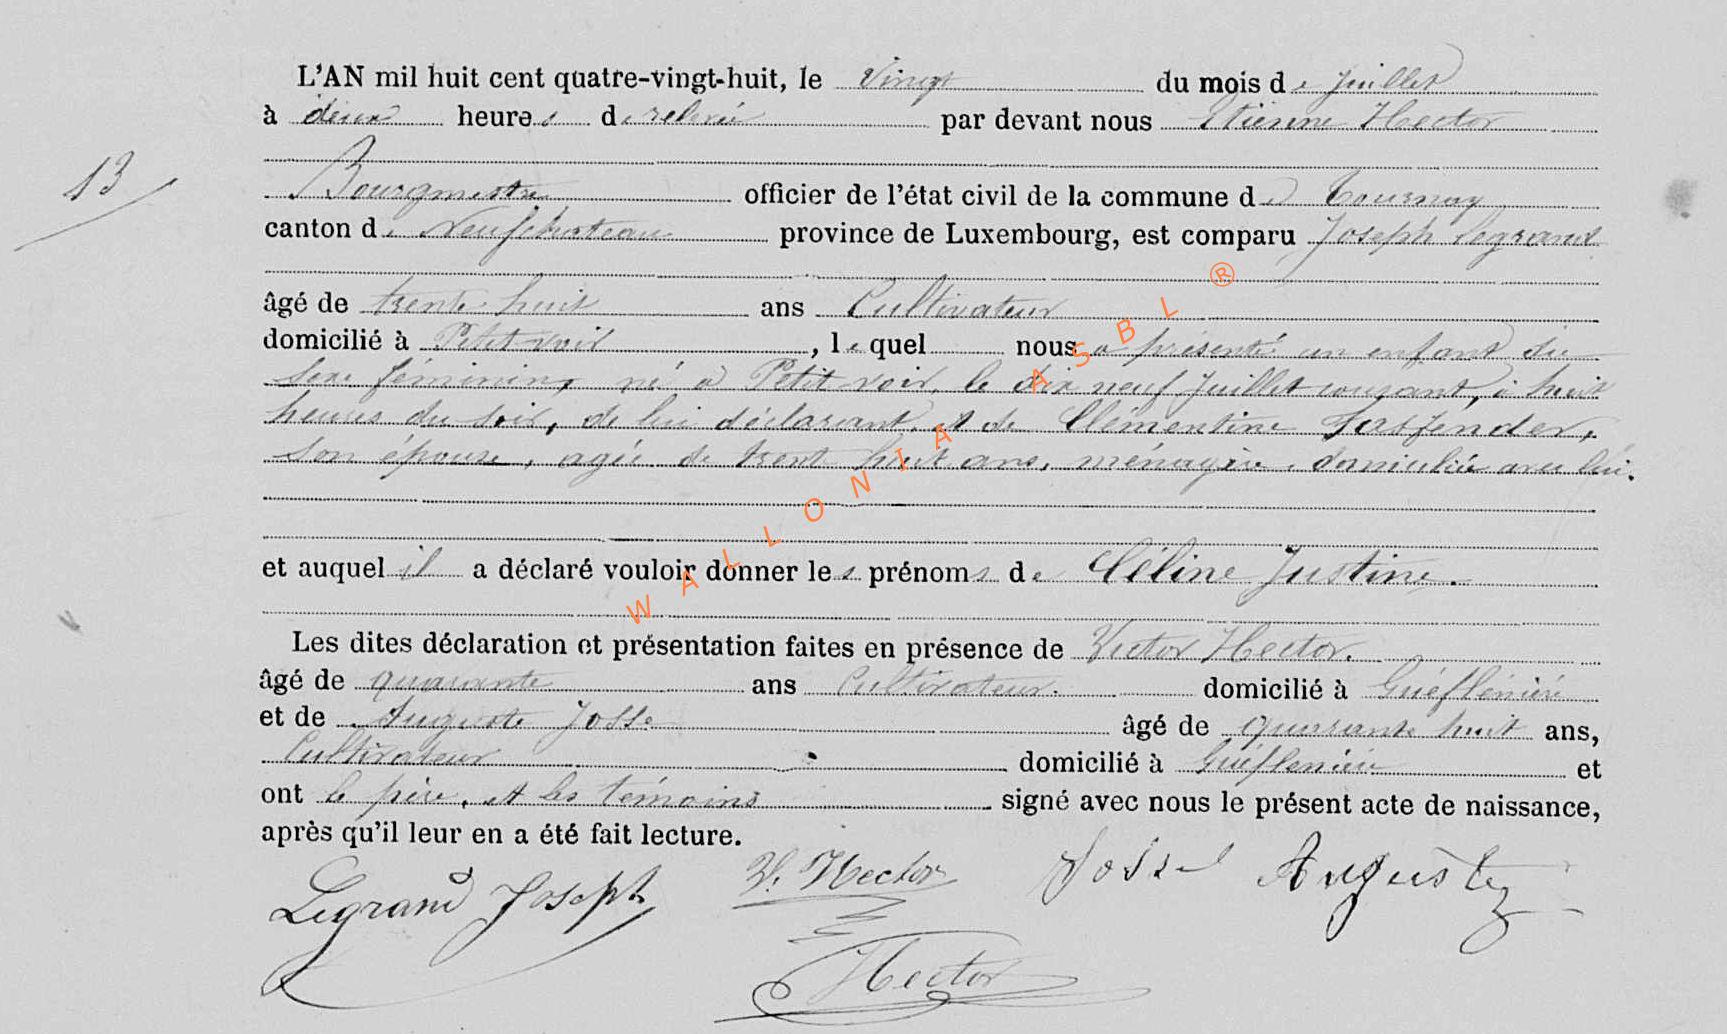 L'AN mil huit cent quatre-vingt-huit, le vingt du mois de Juillet
à deux heures de relevée par devant nous Etienne Hector
13
Bourgmestre officier de l'état civil de la commune de Tournay
canton de Neufchateau province de Luxembourg, est comparu Joseph Legrand
âgé de trente huit ans Cultivateur
domicilié à Petitvoir, lequel nous a présenté un enfant du
sexe féminin, né à Petitvoir, le dix neuf Juillet courant, à huit
heures du soir, de lui déclarant, et de Clémentine Fasfender,
son épouse, agée de trent huit ans, ménagère, domiciliée avec lui.
et auquel il a déclaré vouloir donner les prénoms de Céline Justine.
Les dites déclaration et présentation faites en présence de Victor Hector.
âgé de quarante ans Cultivateur. domicilié à
et de Auguste Josse âgé de quarante huit ans,
Cultivateur domicilié à et
ont le père, et les témoins signé avec nous le présent acte de naissance,
après qu'il leur en a été fait lecture.
Legrand Joseph V. Hector Josse Auguste
Hector
WALLONIA ASBL ®